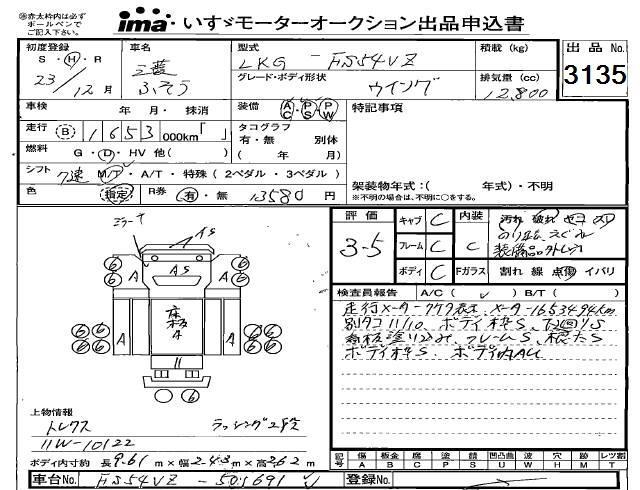 ※赤太枠内は必ず
ボールペンで
ご記入下さい。
ima いすゞモーターオークション出品申込書
初度登録
S・H・R
23/12月
車名
三菱
ふそう
型式
LKG-FS54VZ
グレード・ボディ形状
ウイング
積載 (kg)
排気量 (cc)
12,800
出品 No.
3135
車検 年 月・ 抹消
装備 AC・PS・PW
特記事項
走行 B 1653 000km「 」
タコグラフ
有・無 別体
( 年 月)
燃料 G・D・HV 他( )
シフト 7速 M/T・A/T・特殊 (2ペダル・3ペダル)
架装物年式:( 年式)・不明
※不明の場合は、不明に○をする。
色 指定 R券 有・無 13580 円
ミラーキ
AS
AS
A
A
A
A
床板
A
6
6
6
6
6
6
6
6
6
6
6
6
評価
3.5
キャブ C
フレーム C
ボディ C
内装 C
Fガラス
汚れ 破れ
装備品
割れ 線 点 傷 イバリ
検査員報告 A/C( レ ) B/T( )
走行メーター 表示、メーター1653494km
別タコ 11/10、ボディ枠S、下回りS
フレームS、
ボディ枠S、ボディ内AU
上物情報
トレクス
11W-10122
ラッシング2段
ボディ内寸約 長9.61m×幅2.43m×高2.62m
記号
傷 板金 腐 塗 請 凹凸曲 波 穴 跡 レツ割
A B C P S U W H M T
車台No. FS54VZ-501691
登録No.